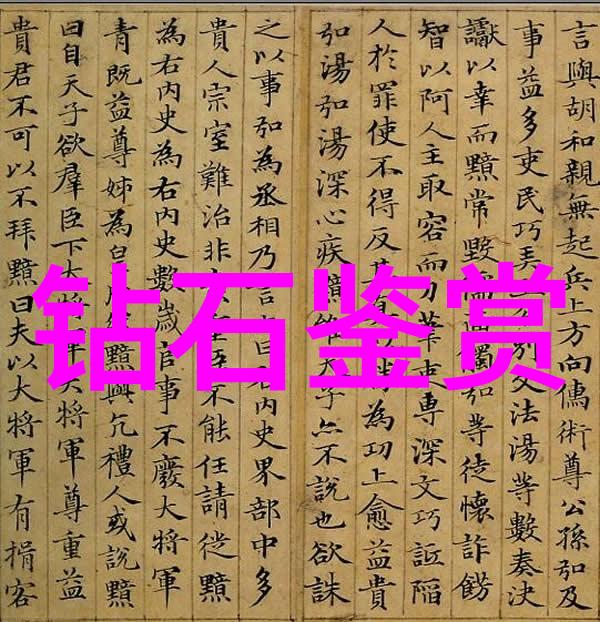 言與胡和親無起兵上方向儒術尊公孫弘及
事益多吏民巧弄別文法湯等數奏決
讞以幸而黯常毀儒面觸弘等徒懷詐飾
智以阿人主取容而刀筆吏專深文巧詆陷
人於罪使不得反其為功上愈益貴
弘湯弘湯深心疾黯唯天子亦不說也欲誅
之以事弘為丞相乃言上曰右內史界部中多
貴人宗室難治非臣不能任請徙黯
為右內史為右內史數歲官事不廢大將軍
青既益尊姊為皇后然黯與亢禮人或說黯
曰自天子欲羣臣下大將軍大將軍尊重益
貴君不可以不拜黯曰夫以大將軍有揖客
钻石鉴赏